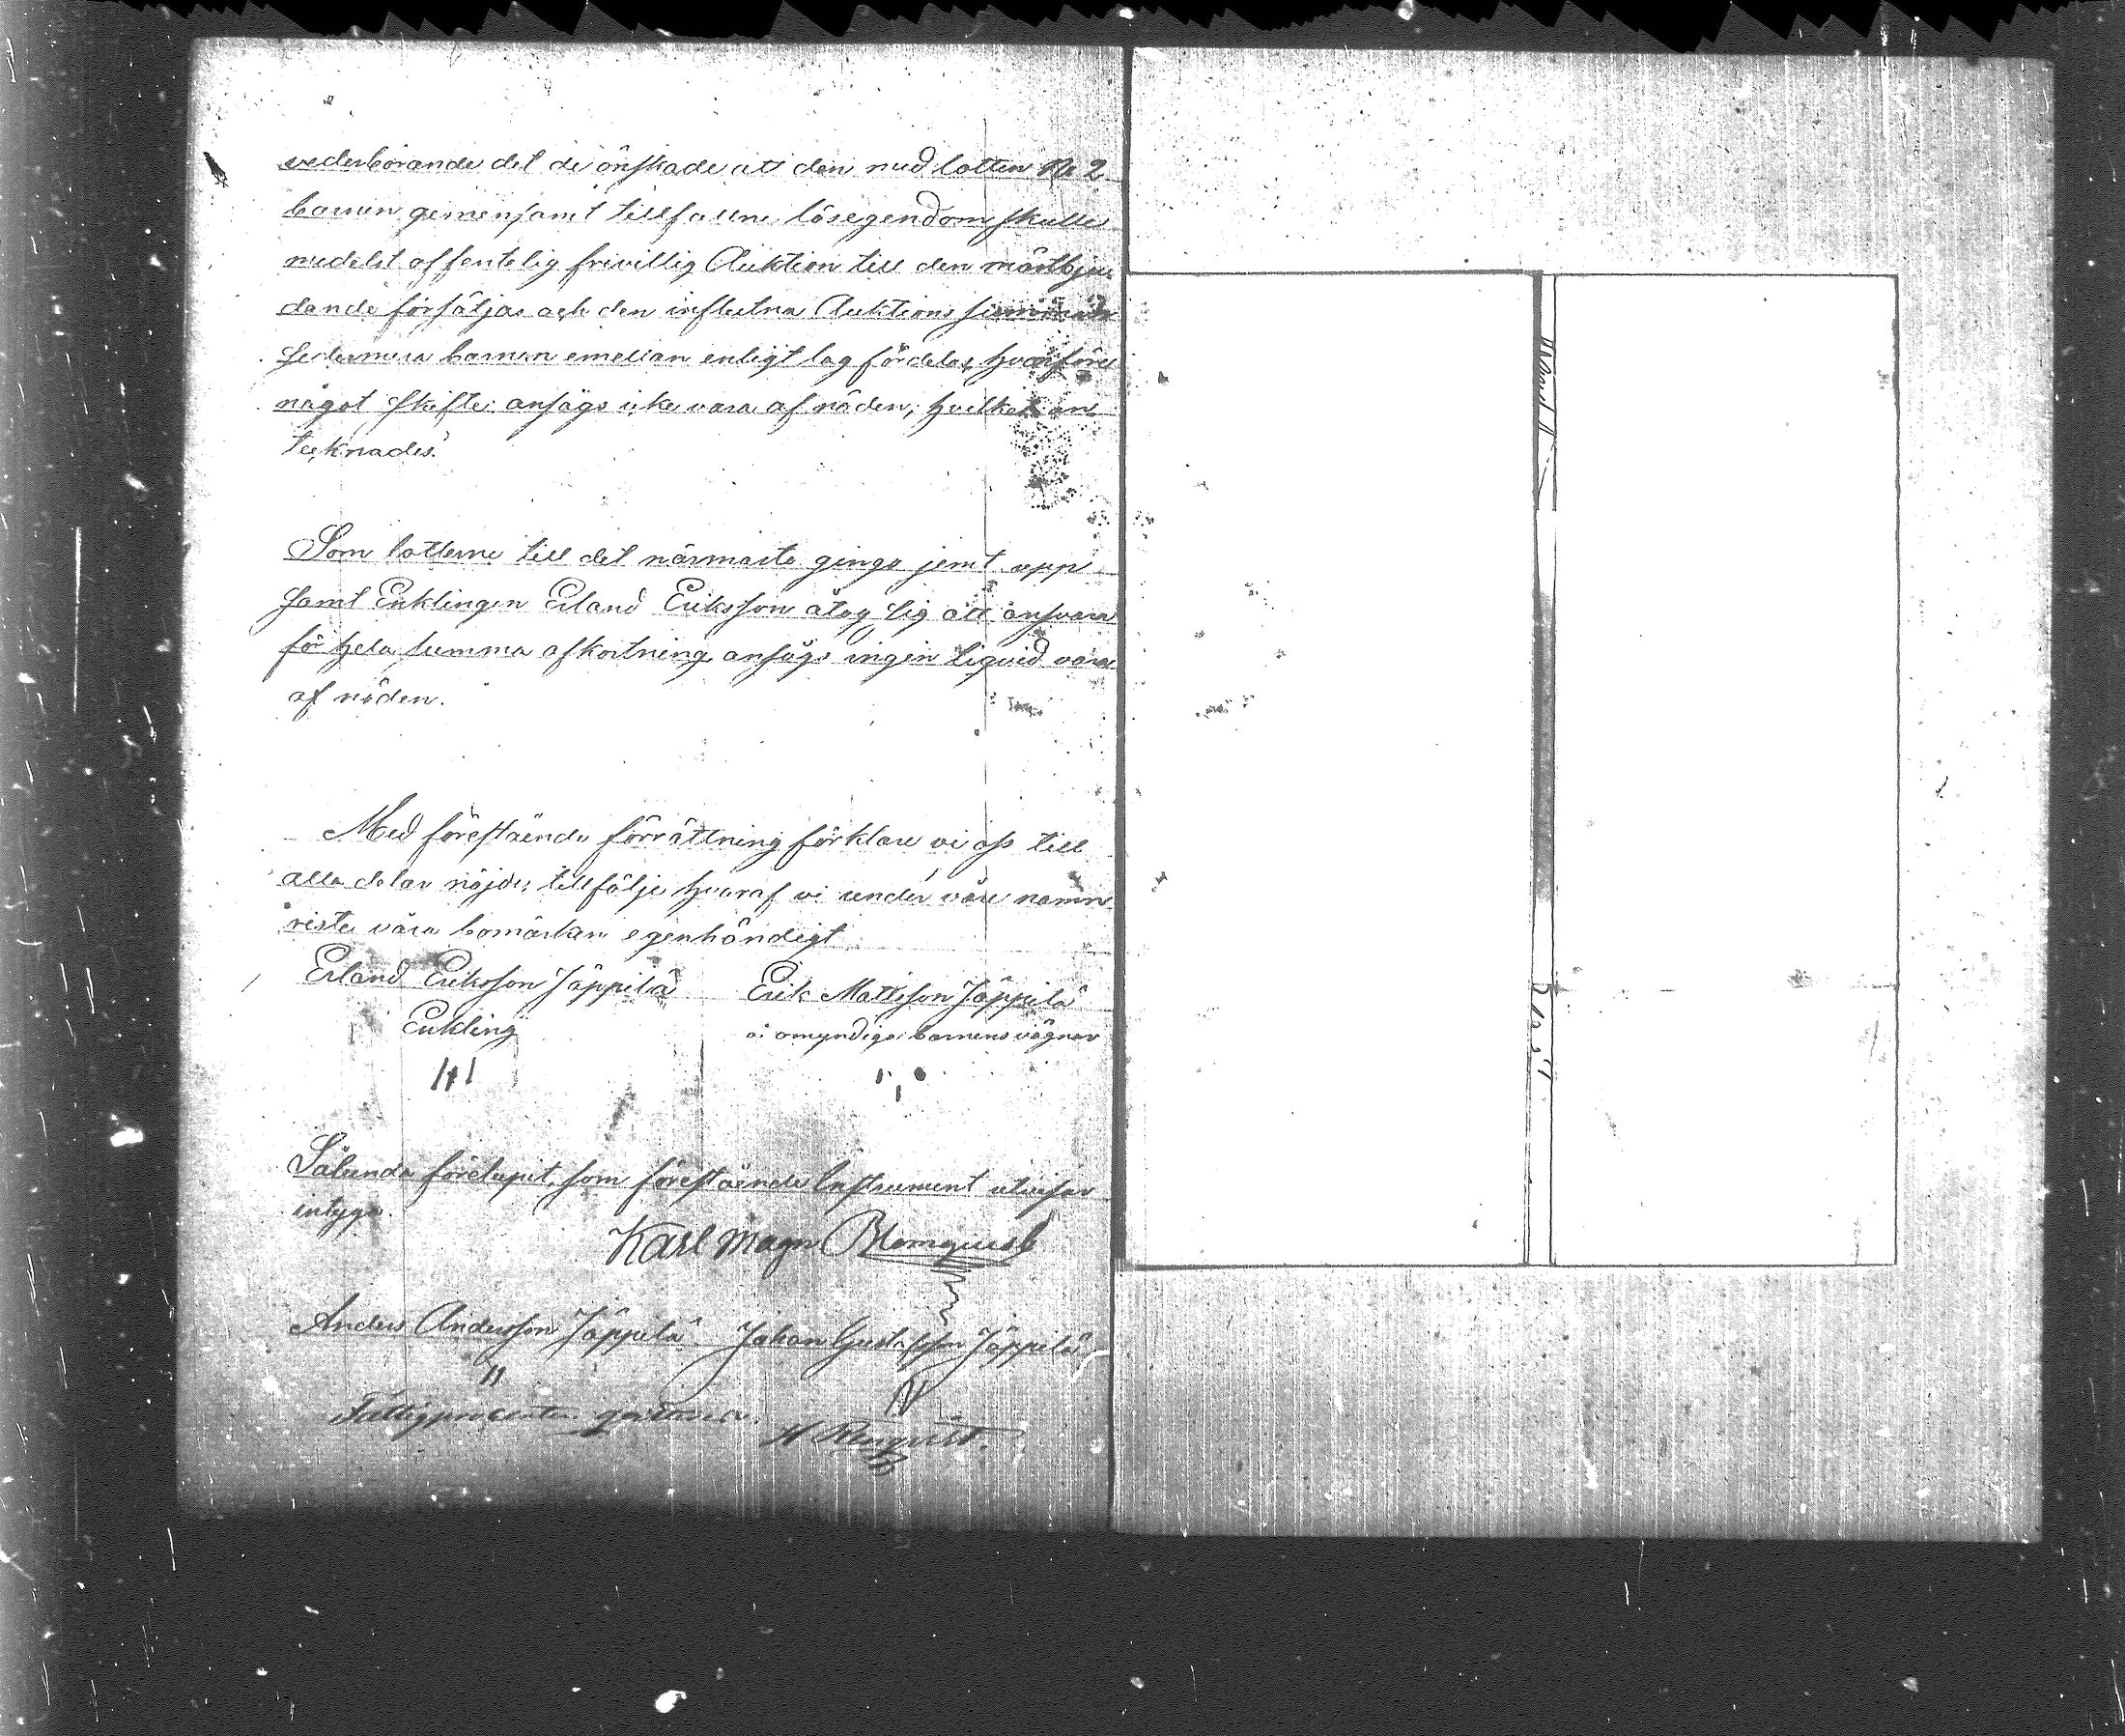 vederbörande det de önskade att den med lotten No 2
barnen gemensamt tillfallne lösegendom skulle
medelst offentelig frivillig Auktion till den mästbju
dande försäljas och den influtna Auktions summan
sedermera barnen emellan enligt lag fördelas, hvarföre
något skifte ansågs icke vara af nöden; hvilket an
tecknades.
Som lotterne till det närmaste gingo jemt upp
samt Enklingen Erland Eriksson åtog sig att ansvara
för hela summa afkortning ansågs ingen liquid vara
af nöden.
Med förestående förrättning förklare vi oss till
alla delar nöjde; tillfölje hvaraf vi under våre namn
riste våra bomärken egenhändigt
Erland Eriksson Jäppilä Erik Mattsson Jäppilä
Enkling å omyndiga barnens vägnar
Sålunda förelupit, som förestående Instrument utvisar
intyga.
Karl Magn Blomqvist
Anders Andersson Jäppilä Johan Gustafsson Jäppilä
Fattigprocenten